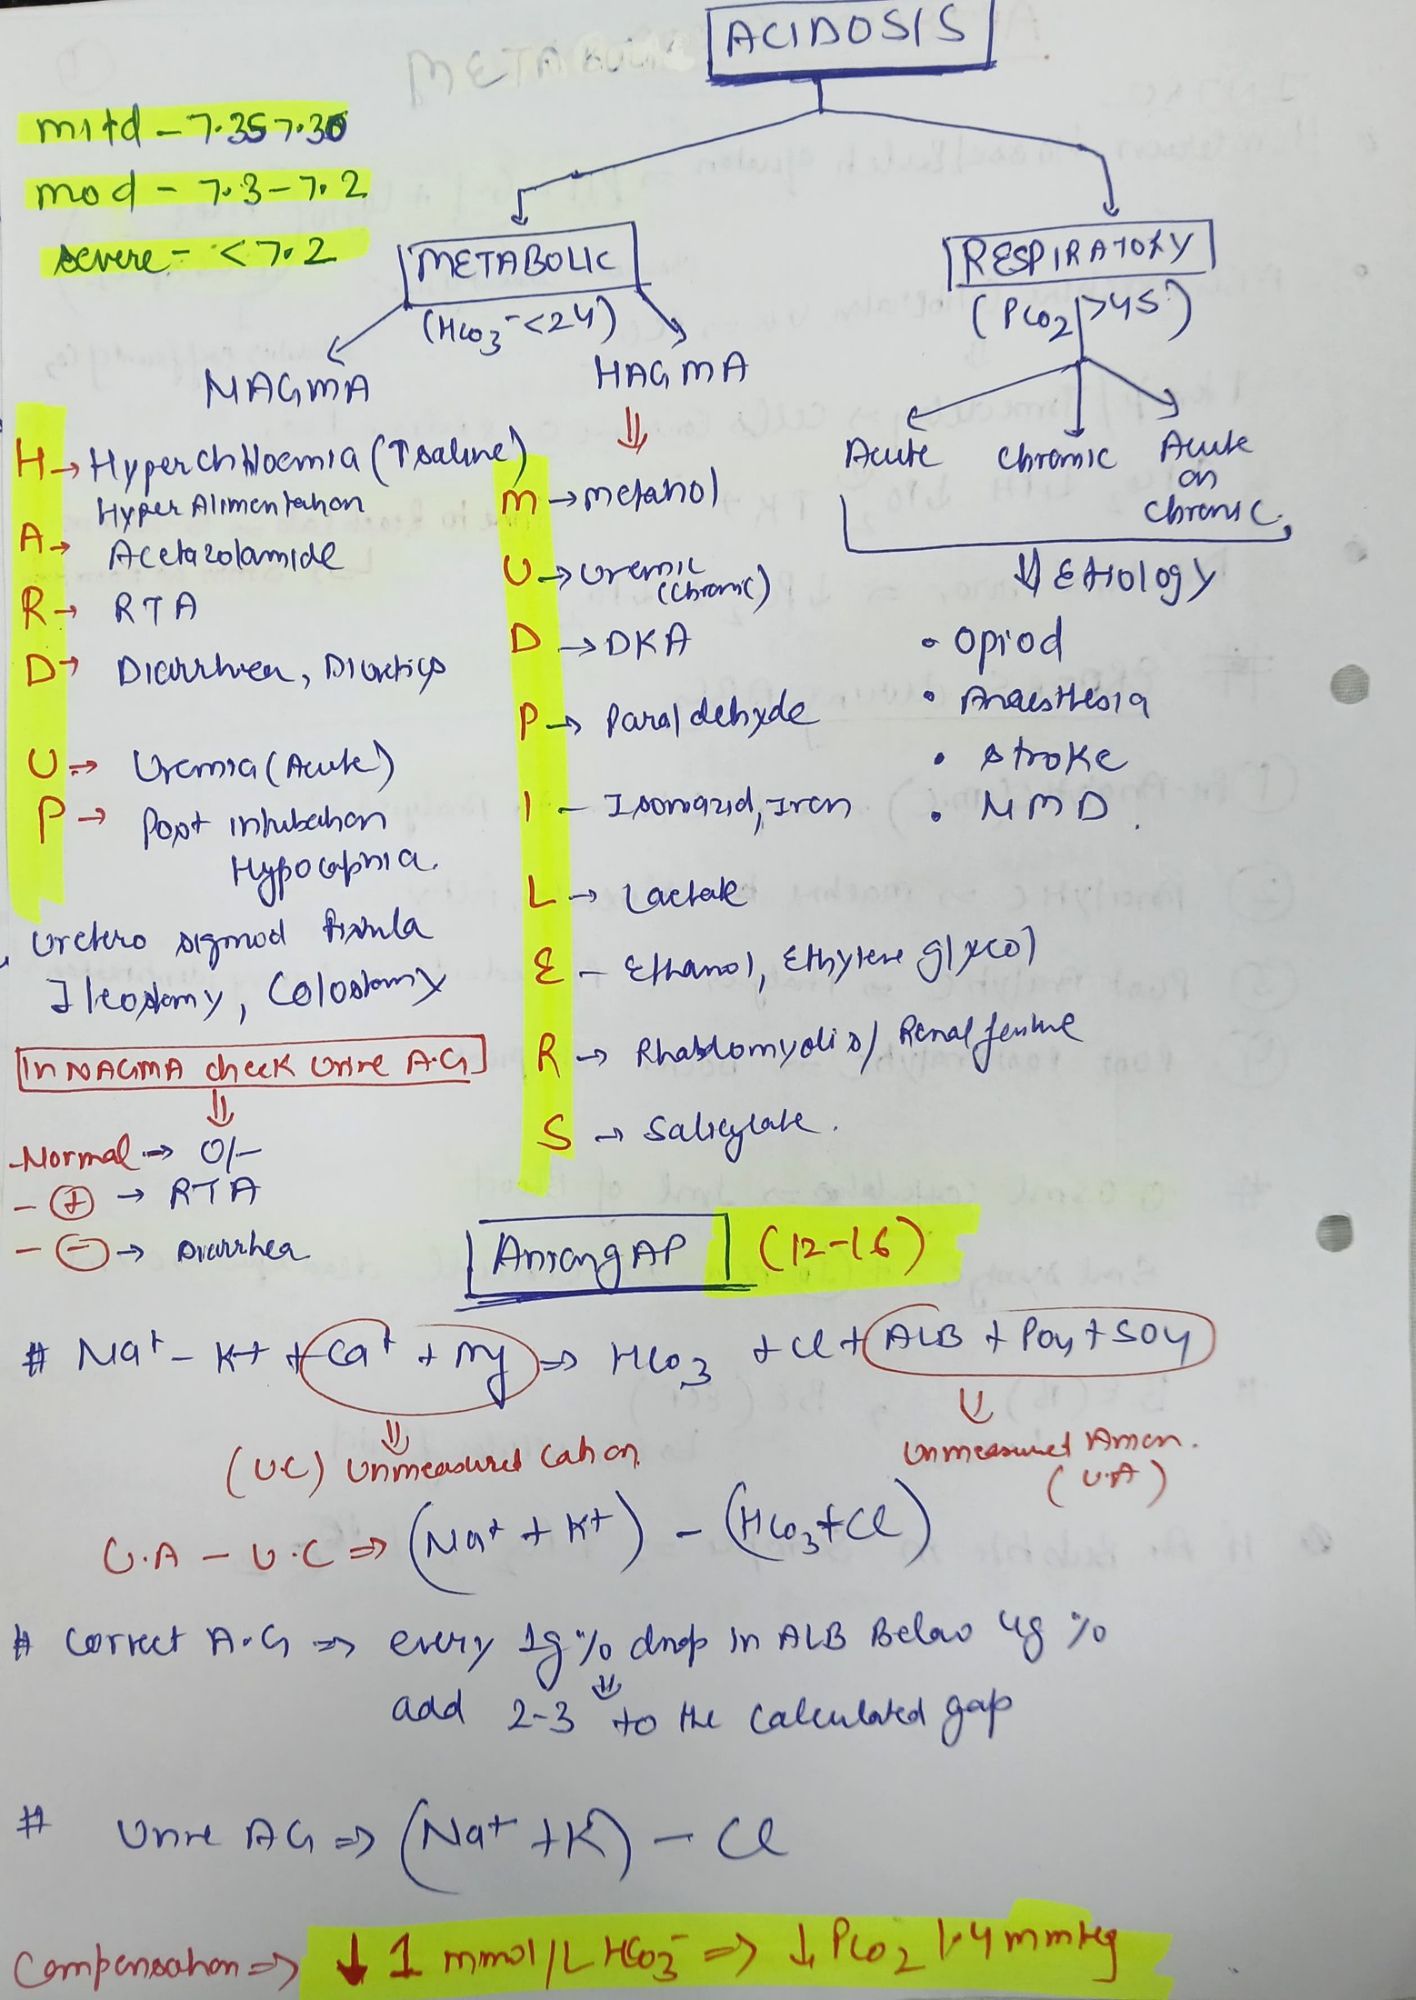 ACIDOSIS
mild - 7.35 7.30
mod - 7.3 - 7.2
severe - < 7.2
METABOLIC
(HCO3⁻ < 24)
RESPIRATORY
(PCO2 > 45)
NAGMA
HAGMA
Acute
Chronic
Acute
on
chronic
H → Hyperchlloemia (↑ saline)
Hyper Alimentation
A → Acetazolamide
R → RTA
D → Diarrhea, Diuretics
U → Uremia (Acute)
P → Post intubation
Hypocapnia.
Uretero sigmod fistula
Ileostomy, Colostomy
M → metanol
U → Uremic
(chronic)
D → DKA
P → Paraldehyde
I - Isoniazid, Iron
L → Lactate
E - Ethanol, Ethylene glycol
R → Rhabdomyolis / Renal failure
S → Salicylate.
⇓ Etiology
• Opiod
• Anaesthesia
• stroke
• NMD.
In NAGMA check Urine A.G
⇓
- Normal → 0/-
- ⊕ → RTA
- ⊖ → Diarrhea
Anion gAP (12-16)
# Na⁺ - K+ + Ca⁺ + Mg ⇒ HCO3 + Cl + ALB + PO4 + SO4
⇓
(U.C) Unmeasured Cation
⇓
Unmeasured Anion.
(U.A)
U.A - U.C ⇒ (Na⁺ + K+) - (HCO3 + Cl)
# Correct A.G ⇒ every 1g % drop in ALB Below 4g %
⇓
add 2-3 to the calculated gap
# Urine AG ⇒ (Na⁺ + K) - Cl
Compensation ⇒ ↓ 1 mmol/L HCO3⁻ ⇒ ↓ PCO2 1.4 mmHg